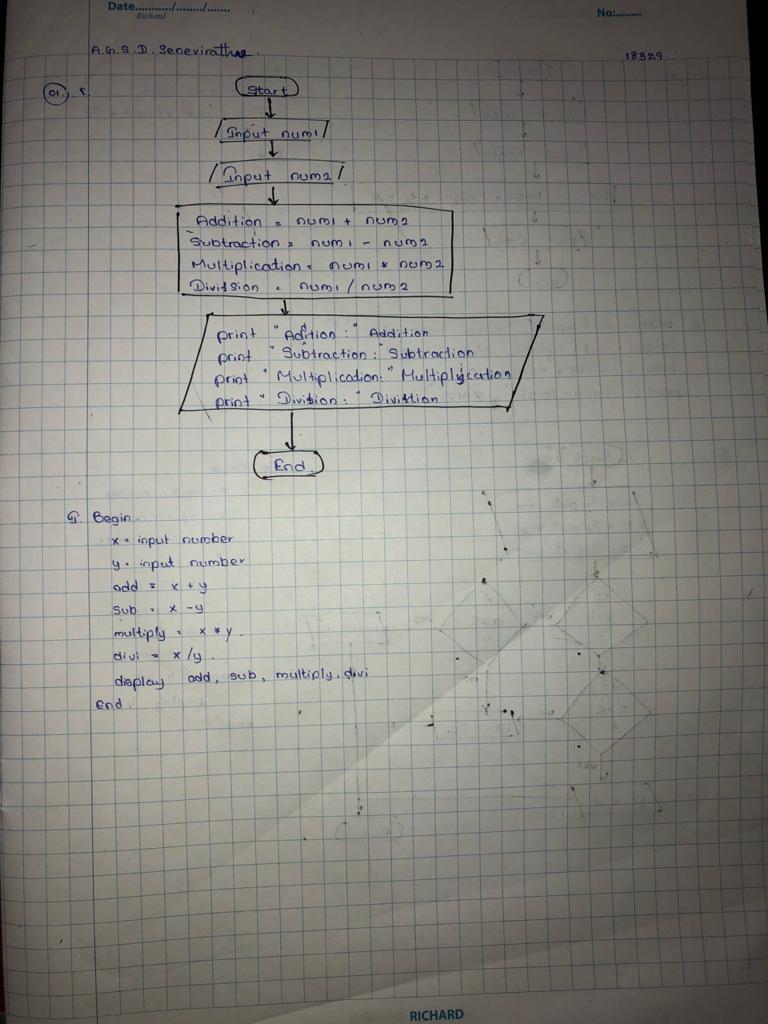 Date........../......../.......
Richard
No:........
A.G.S.D. Senevirathne.
18329
01).
Start
Input num1
Input num2
Addition = num1 + num2
Subtraction = num1 - num2
Multiplication = num1 * num2
Division = num1 / num2
print "Adition:" Addition
print "Subtraction:" Subtraction
print "Multiplication:" Multiplycation
print "Division:" Division
End
Begin.
x = input number
y = input number
add = x + y
sub = x - y
multiply = x * y.
divi = x / y.
display add, sub, multiply, divi
End.
RICHARD